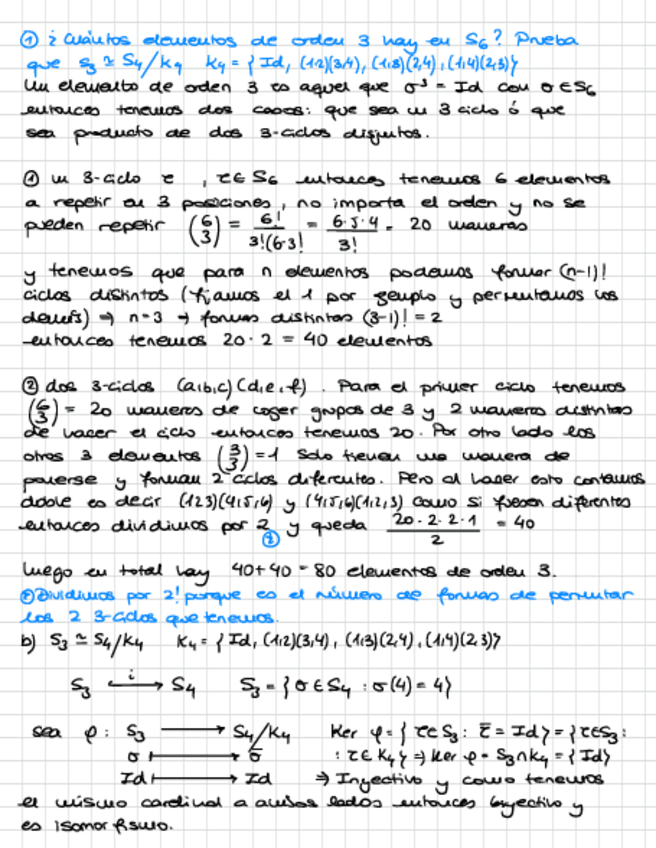 ① ¿Cuántos elementos de orden 3 hay en S₆? Prueba
que S₃ ≃ S₄/K₄ K₄ = { Id, (1,2)(3,4), (1,3)(2,4), (1,4)(2,3)}
Un elemento de orden 3 es aquel que σ³ = Id con σ ∈ S₆
entonces tenemos dos casos: que sea un 3 ciclo ó que
sea producto de dos 3-ciclos disjuntos.
① un 3-ciclo τ , τ ∈ S₆ entonces tenemos 6 elementos
a repetir en 3 posiciones, no importa el orden y no se
pueden repetir (6 3) = 6!/3!(6-3)! = 6·5·4/3! = 20 maneras
y tenemos que para n elementos podemos formar (n-1)!
ciclos distintos (fijamos el 1 por ejemplo y permutamos los
demás) ⇒ n=3 → formas distintas (3-1)! = 2
entonces tenemos 20·2 = 40 elementos
② dos 3-ciclos (a,b,c)(d,e,f). Para el primer ciclo tenemos
(6 3) = 20 maneras de coger grupos de 3 y 2 maneras distintas
de hacer el ciclo entonces tenemos 20. Por otro lado los
otros 3 elementos (3 3) = 1 solo tienen una manera de
ponerse y forman 2 ciclos diferentes. Pero al hacer esto contamos
doble es decir (1 2 3)(4,5,6) y (4,5,6)(1,2,3) como si fuesen diferentes
entonces dividimos por 2 y queda 20·2·2·1/2 = 40
②
luego en total hay 40+40 = 80 elementos de orden 3.
② Dividimos por 2! porque es el número de formas de permutar
los 2 3-ciclos que tenemos.
b) S₃ ≃ S₄/K₄ K₄ = { Id, (1,2)(3,4), (1,3)(2,4), (1,4)(2,3)}
S₃ ⟶ i S₄ S₃ = {σ ∈ S₄ : σ(4) = 4}
sea φ: S₃ ⟶ S₄/K₄ Ker φ = { τ ∈ S₃ : τ̄ = Id} = {τ ∈ S₃ :
σ ⟼ σ̄ : τ ∈ K₄} ⇒ Ker φ = S₃ ∩ K₄ = {Id}
Id ⟼ Id ⇒ Inyectivo y como tenemos
el mismo cardinal a ambos lados entonces biyectivo y
es isomorfismo.